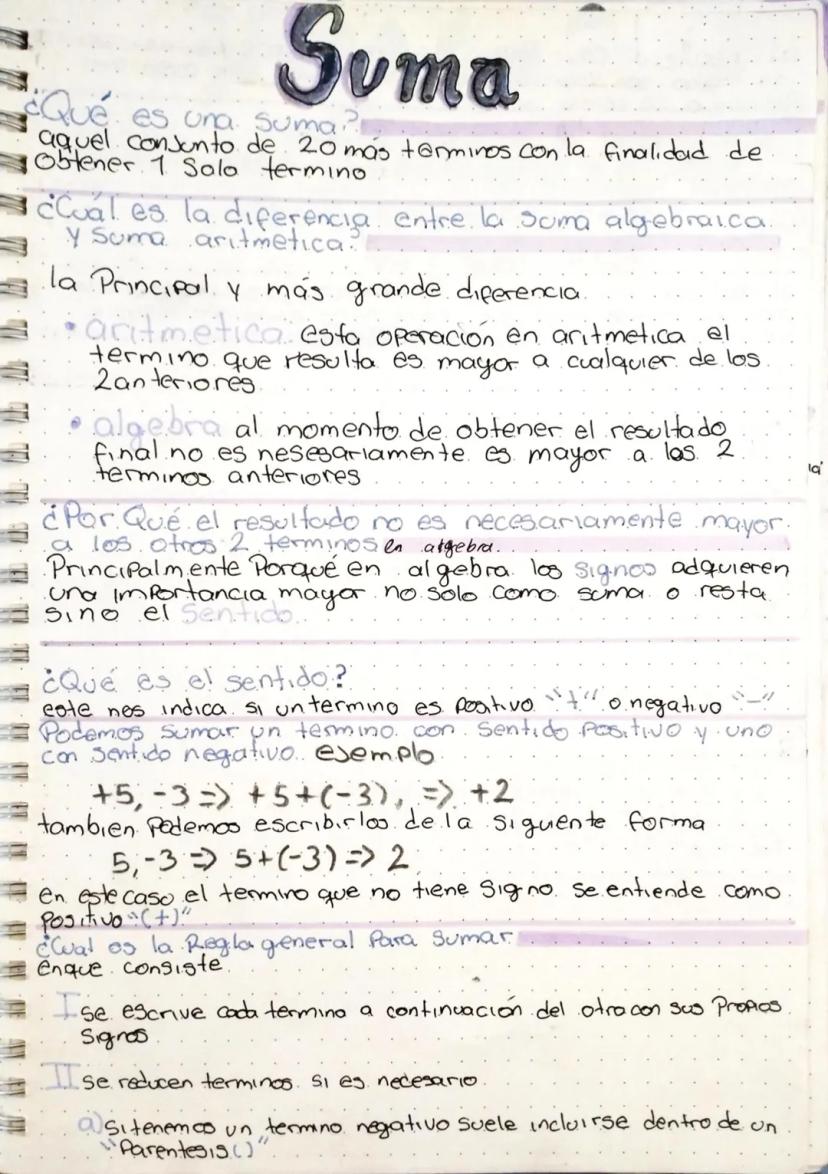 Suma
¿Qué es una suma?
aquel conjunto de 2 o más terminos con la finalidad de
obtener 1 Solo termino
¿Cuál es la diferencia entre la suma algebraica
y suma aritmetica?
la Principal y más grande diferencia
• aritmetica esta operación en aritmetica el
termino que resulta es mayor a cualquier de los
2 anteriores
• algebra al momento de obtener el resultado
final no es nesesariamente es mayor a los 2
terminos anteriores
¿Por Qué el resultado no es necesariamente mayor
a los otros 2 terminos en algebra.
Principalmente Porqué en algebra los signos adquieren
una importancia mayor no solo como suma o resta
sino el sentido
¿Qué es el sentido?
este nos indica si un termino es positivo "+" o negativo "-"
Podemos sumar un termino con sentido positivo y uno
con sentido negativo. esemplo
+5, -3 => +5+(-3), => +2
tambien Podemos escribirlos de la siguente forma
5, -3 => 5+(-3) => 2
en este caso el termino que no tiene signo se entiende como
positivo "(+)"
¿Cual es la Regla general Para sumar
enque consiste
I se escrive cada termino a continuación del otro con sus Propios
signos
II se reducen terminos si es necesario
a) Si tenemos un termino negativo suele incluirse dentro de un
"Parentesis ()"